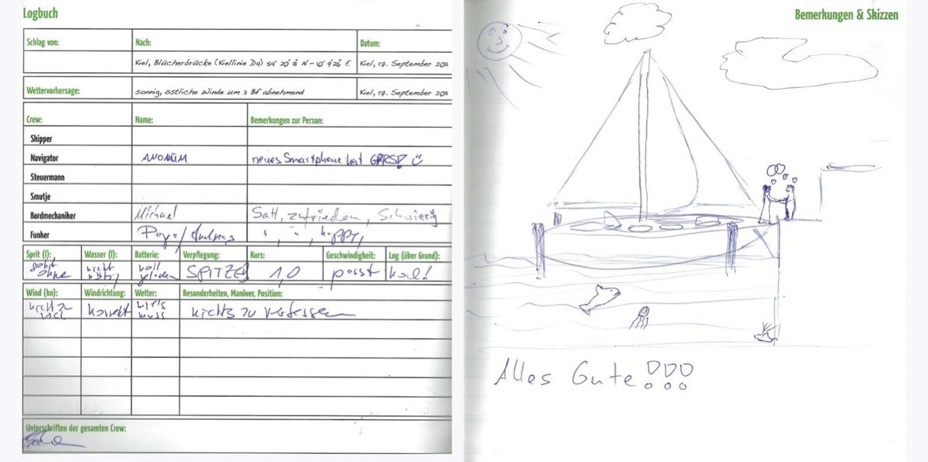 Logbuch
Schlag von: Nach: Datum:
Kiel, Blücherbrücke (Kiellinie D4) 54 20 N - 10 E Kiel, 17. September 20
Wettervorhersage: sonnig, östliche Winde um 3 Bf abnehmend Kiel, 17. September 20
Crew: Name: Bemerkungen zur Person:
Skipper
Navigator ANONÜM neues Smartphone hat GPRS!
Steuermann
Smutje
Bordmechaniker Michael Satt, zufrieden, Schwierig
Funker happy,
Sprit (l): Wasser (l): Batterie: Verpflegung: Kurs: Geschwindigkeit: Log (über Grund):
ohne nicht voll SPITZE 1,0 passt
Wind (kn): Windrichtung: Wetter: Besonderheiten, Manöver, Position:
nicht zu viel korrekt nichts zu verbessern
Unterschriften der gesamten Crew:
Bemerkungen & Skizzen
Alles Gute!!!